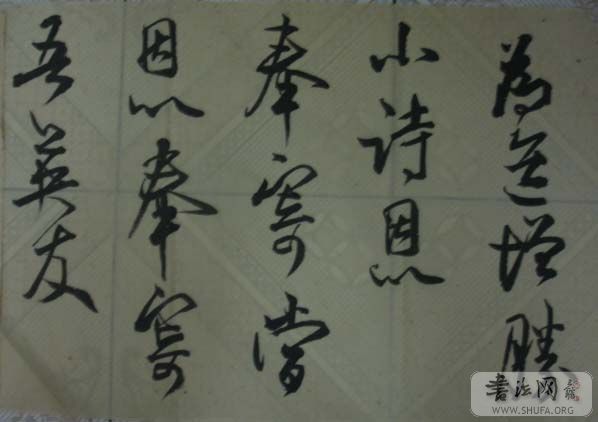 為增勝
小詩因以
奉寄
因以奉寄
吾英友
書法网
WWW.SHUFA.ORG